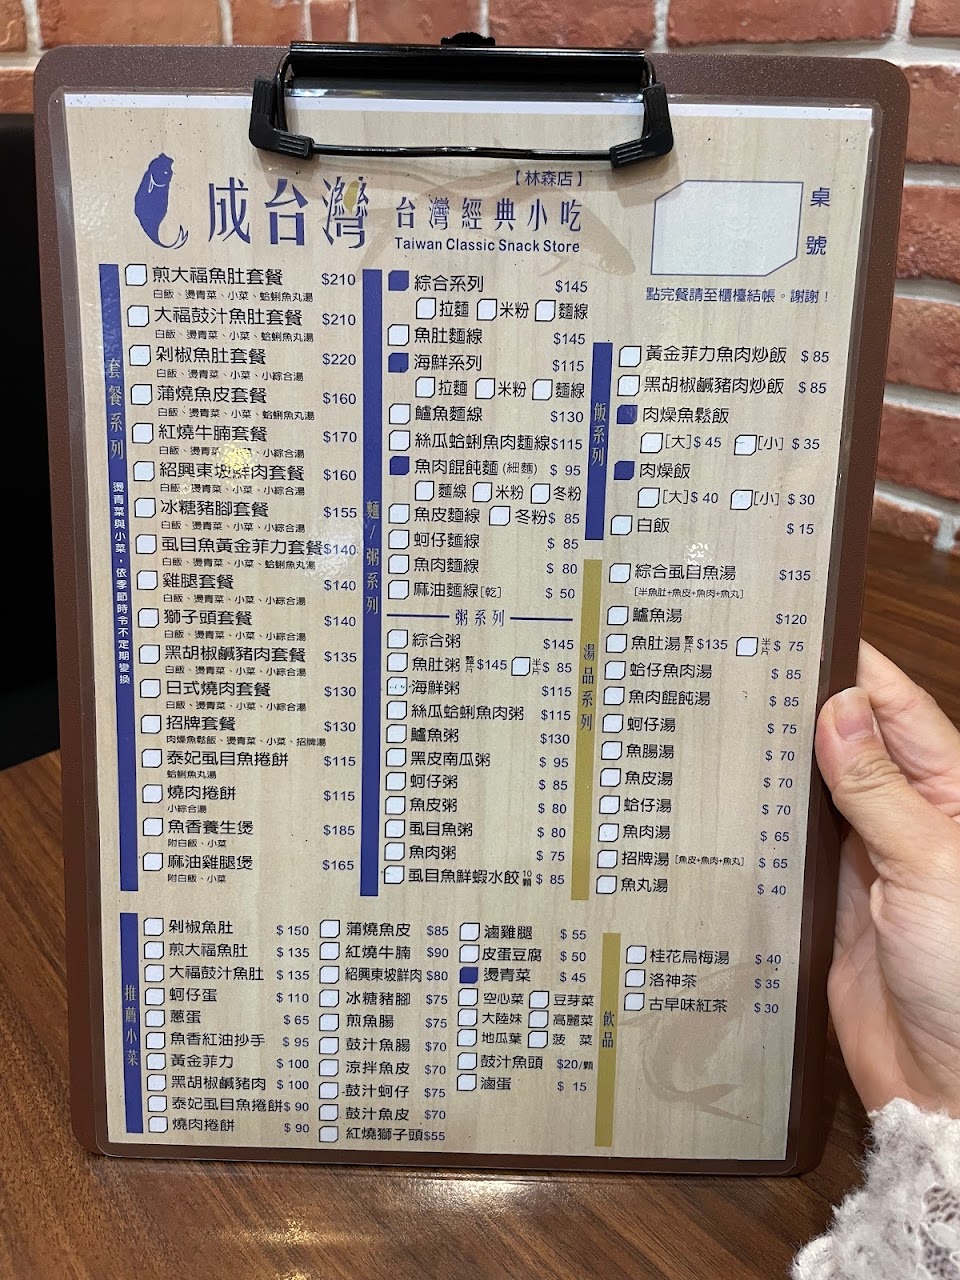 【林森店】
成台灣
台灣經典小吃
Taiwan Classic Snack Store
桌號
點完餐請至櫃檯結帳。謝謝！
套餐系列
燙青菜與小菜，依季節時令不定期變換
煎大福魚肚套餐 $210
白飯、燙青菜、小菜、蛤蜊魚丸湯
大福鼓汁魚肚套餐 $210
白飯、燙青菜、小菜、蛤蜊魚丸湯
剁椒魚肚套餐 $220
白飯、燙青菜、小菜、小綜合湯
蒲燒魚皮套餐 $160
白飯、燙青菜、小菜、蛤蜊魚丸湯
紅燒牛腩套餐 $170
白飯、燙青菜、小菜、小綜合湯
紹興東坡鮮肉套餐 $160
白飯、燙青菜、小菜、小綜合湯
冰糖豬腳套餐 $155
白飯、燙青菜、小菜、小綜合湯
虱目魚黃金菲力套餐 $140
白飯、燙青菜、小菜、蛤蜊魚丸湯
雞腿套餐 $140
白飯、燙青菜、小菜、小綜合湯
獅子頭套餐 $140
白飯、燙青菜、小菜、小綜合湯
黑胡椒鹹豬肉套餐 $135
白飯、燙青菜、小菜、小綜合湯
日式燒肉套餐 $130
白飯、燙青菜、小菜、小綜合湯
招牌套餐 $130
肉燥魚鬆飯、燙青菜、小菜、招牌湯
泰妃虱目魚捲餅 $115
蛤蜊魚丸湯
燒肉捲餅 $115
小綜合湯
魚香養生煲 $185
附白飯、小菜
麻油雞腿煲 $165
附白飯、小菜
麵/粥系列
綜合系列 $145
拉麵 米粉 麵線
魚肚麵線 $145
海鮮系列 $115
拉麵 米粉 麵線
鱸魚麵線 $130
絲瓜蛤蜊魚肉麵線 $115
魚肉餛飩麵(細麵) $ 95
麵線 米粉 冬粉
魚皮麵線 冬粉 $ 85
蚵仔麵線 $ 85
魚肉麵線 $ 80
麻油麵線[乾] $ 50
粥系列
綜合粥 $145
魚肚粥 整片 $145 半片 $ 85
海鮮粥 $115
絲瓜蛤蜊魚肉粥 $115
鱸魚粥 $130
黑皮南瓜粥 $ 95
蚵仔粥 $ 85
魚皮粥 $ 80
虱目魚粥 $ 80
魚肉粥 $ 75
虱目魚鮮蝦水餃 10顆 $ 85
飯系列
黃金菲力魚肉炒飯 $ 85
黑胡椒鹹豬肉炒飯 $ 85
肉燥魚鬆飯
[大] $ 45 [小] $ 35
肉燥飯
[大] $ 40 [小] $ 30
白飯 $ 15
湯品系列
綜合虱目魚湯 $135
[半魚肚+魚皮+魚肉+魚丸]
鱸魚湯 $120
魚肚湯 整片 $135 半片 $ 75
蛤仔魚肉湯 $ 85
魚肉餛飩湯 $ 85
蚵仔湯 $ 75
魚腸湯 $ 70
魚皮湯 $ 70
蛤仔湯 $ 70
魚肉湯 $ 65
招牌湯[魚皮+魚肉+魚丸] $ 65
魚丸湯 $ 40
推薦小菜
剁椒魚肚 $ 150
煎大福魚肚 $ 135
大福鼓汁魚肚 $ 135
蚵仔蛋 $ 110
蔥蛋 $ 65
魚香紅油抄手 $ 95
黃金菲力 $ 100
黑胡椒鹹豬肉 $ 100
泰妃虱目魚捲餅 $ 90
燒肉捲餅 $ 90
蒲燒魚皮 $85
紅燒牛腩 $90
紹興東坡鮮肉 $80
冰糖豬腳 $75
煎魚腸 $75
鼓汁魚腸 $70
涼拌魚皮 $70
鼓汁蚵仔 $75
鼓汁魚皮 $70
紅燒獅子頭 $55
滷雞腿 $ 55
皮蛋豆腐 $ 50
燙青菜 $ 45
空心菜 豆芽菜
大陸妹 高麗菜
地瓜葉 菠 菜
鼓汁魚頭 $20/顆
滷蛋 $ 15
飲品
桂花烏梅湯 $ 40
洛神茶 $ 35
古早味紅茶 $ 30